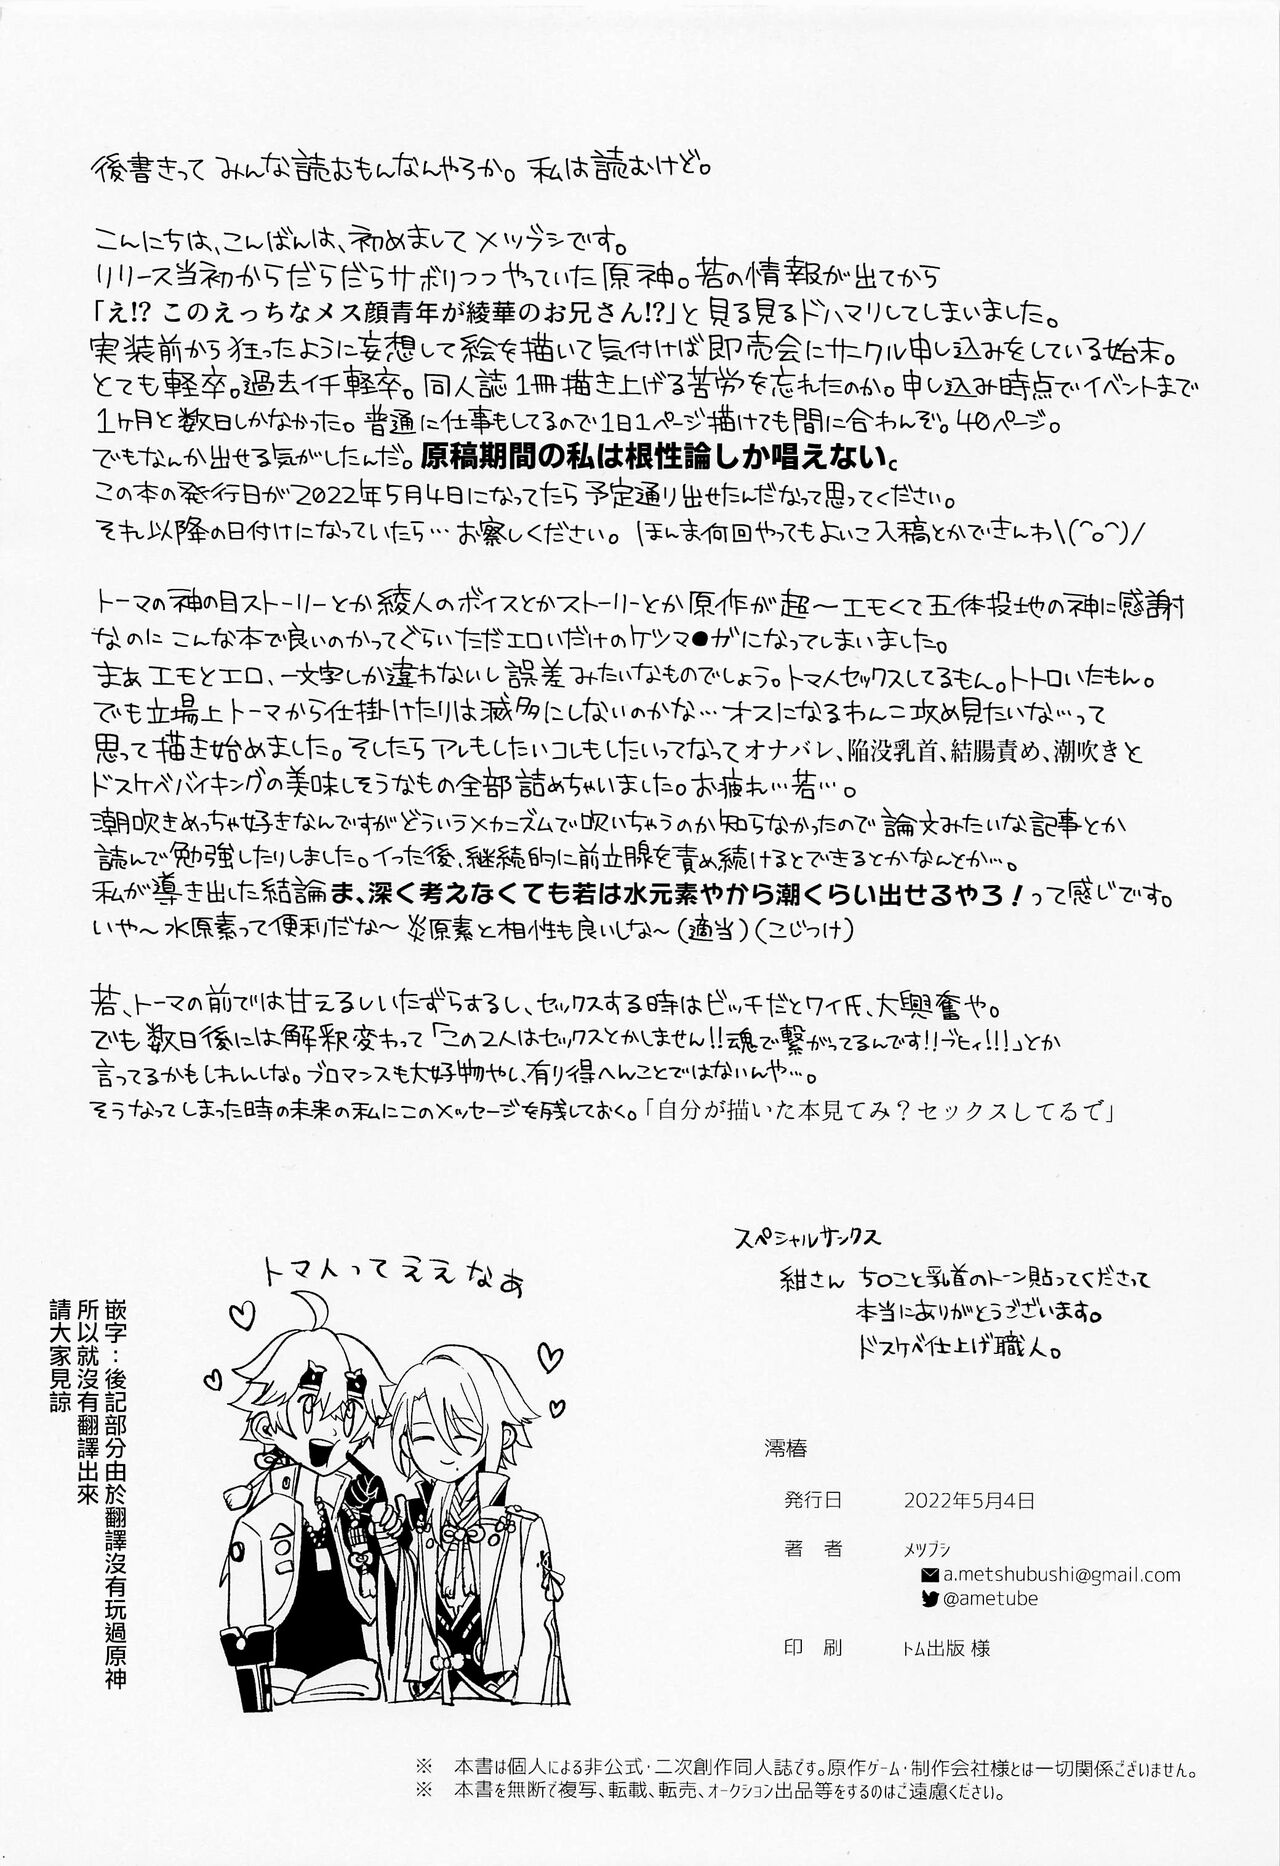 後書きって みんな読むもんなんやろか。 私は読むけど。
こんにちは、こんばんは、初めまして メツブシです。
リリース当初からだらだらサボりつつやっていた原神。若の情報が出てから
「え!? このえっちなメス顔青年が綾華のお兄さん!?」と 見る見るドハマりしてしまいました。
実装前から狂ったように妄想して絵を描いて気付けば即売会にサークル申し込みをしている始末。
とても軽卒。過去イチ軽卒。同人誌1冊描き上げる苦労を忘れたのか。申し込み時点でイベントまで
1ヶ月と数日しかなかった。普通に仕事もしてるので1日1ページ描けても間に合わんぞ。40ページ。
でもなんか出せる気がしたんだ。原稿期間の私は根性論しか唱えない。
この本の発行日が2022年5月4日になってたら予定通り出せたんだなって思ってください。
それ以降の日付けになっていたら…お察しください。ほんま何回やってもよいこ入稿とかできんわ\(^o^)/
トーマの神の目ストーリーとか綾人のボイスとかストーリーとか原作が超〜エモくて五体投地の神に感謝
なのにこんな本で良いのかってぐらいただエロいだけのケツマ●ガになってしまいました。
まぁエモとエロ、一文字しか違わないし誤差みたいなものでしょう。トマ人セックスしてるもん。トトロいたもん。
でも立場上トーマから仕掛けたりは滅多にしないのかな…オスになるわんこ攻め見たいな…って
思って描き始めました。そしたらアレもしたいコレもしたいってなってオナバレ、陥没乳首、結腸責め、潮吹きと
ドスケベバイキングの美味しそうなもの全部詰めちゃいました。お疲れ…若…。
潮吹きめっちゃ好きなんですがどういうメカニズムで吹いちゃうのか知らなかったので論文みたいな記事とか
読んで勉強したりしました。イった後、継続的に前立腺を責め続けるとできるとかなんとか…。
私が導き出した結論ま、深く考えなくても若は水元素やから潮くらい出せるやろ！って感じです。
いや〜水原素って便利だな〜炎原素と相性も良いしな〜(適当)(こじつけ)
若、トーマの前では甘えるしいたずらするし、セックスする時はビッチだとワイ氏、大興奮や。
でも数日後には解釈変わって「この2人はセックスとかしません!!魂で繋がってるんです!!ブヒィ!!!」とか
言ってるかもしれんしな。ブロマンスも大好物やし、有り得へんことではないんや…。
そうなってしまった時の未来の私にこのメッセージを残しておく。「自分が描いた本見てみ？セックスしてるで」
スペシャルサンクス
紺さん ち○こと乳首のトーン貼ってくださって
本当にありがとうございます。
ドスケベ仕上げ職人。
トマ人ってええなぁ
嵌字：後記部分由於翻譯沒有玩過原神
所以就沒有翻譯出來
請大家見諒
澪椿
発行日 2022年5月4日
著 者 メツブシ
a.metshubushi@gmail.com
@ametube
印 刷 トム出版 様
※ 本書は個人による非公式・二次創作同人誌です。原作ゲーム・制作会社様とは一切関係ございません。
※ 本書を無断で複写、転載、転売、オークション出品等をするのはご遠慮ください。